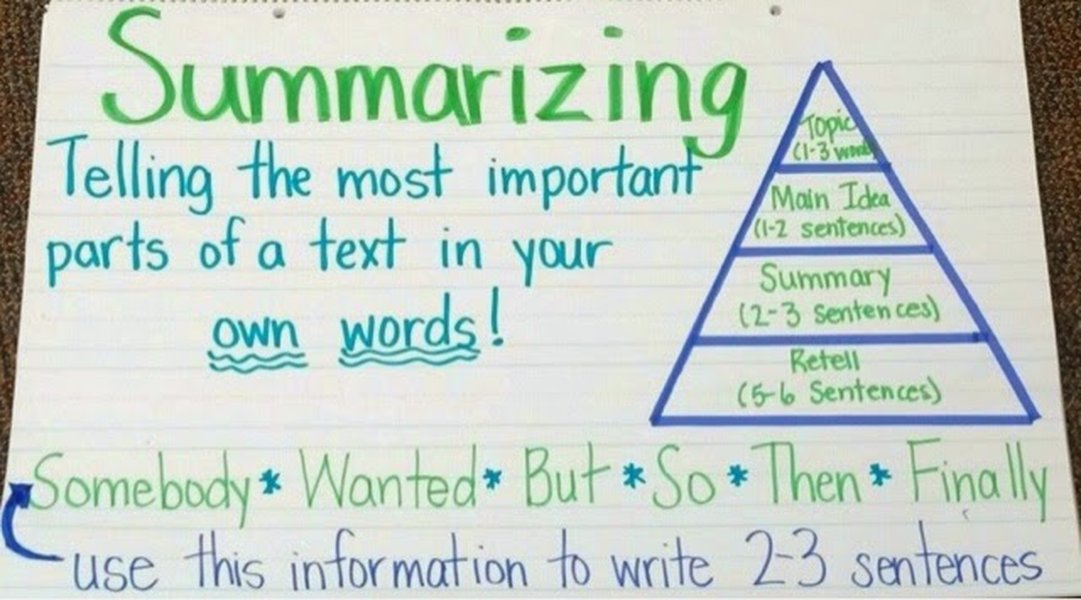 Summarizing
Telling the most important
parts of a text in your
own words!
Topic
(1-3 words
Main Idea
(1-2 sentences)
Summary
(2-3 Sentences)
Retell
(5-6 Sentences)
Somebody * Wanted * But * So * Then * Finally
use this information to write 2-3 sentences